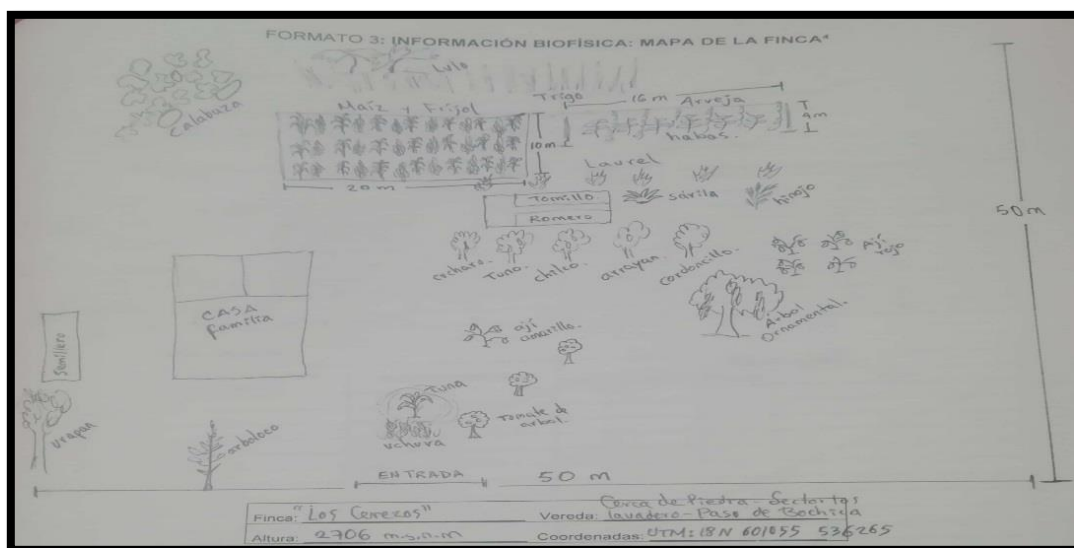 FORMATO 3: INFORMACIÓN BIOFÍSICA: MAPA DE LA FINCA⁴
Lulo
Calabaza
Maíz y Frijol
Trigo
16 m
Arveja
4m
habas.
10 m
20 m
Laurel
Tomillo
Romero
sávila
hinojo
50 m
cucharo.
Tuno.
chilco.
arrayan.
cordoncillo.
Ají rojo
Arbol
Ornamental.
CASA
familia
Semillero
ají
amarillo.
Tuna
uchuva
Tomate de
arbol.
Urapan
arboloco
ENTRADA
50 m
Finca: "Los Cerezos"
Vereda: Cerca de Piedra - Sector los
lavadero - Paso de Bochica
Altura: 2706 m.s.n.m
Coordenadas: UTM: 18N 601055 536265